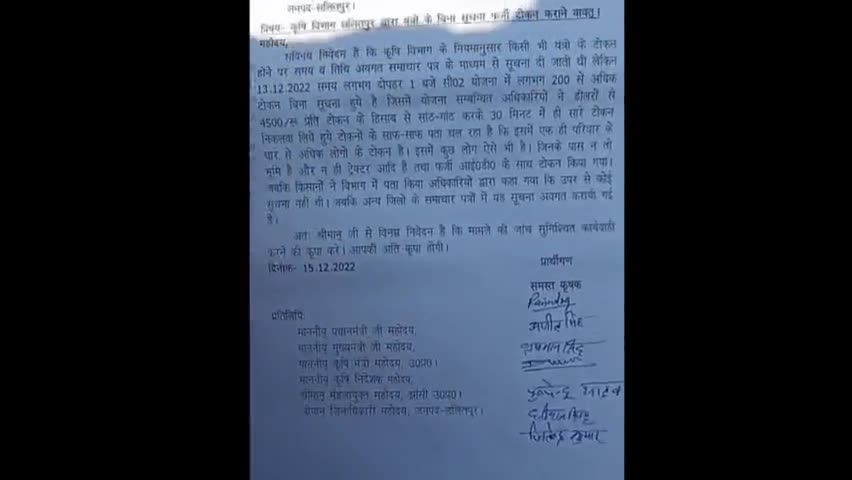 जनपद-ललितपुर।
विषय- कृषि विभाग ललितपुर द्वारा यंत्रो के बिना सूचना फर्जी टोकन कराने बावत्।
महोदय,
सविनय निवेदन है कि कृषि विभाग के नियमानुसार किसी भी यंत्रो के टोकन
होने पर समय व तिथि अवगत समाचार पत्र के माध्यम से सूचना दी जाती थी लेकिन
13.12.2022 समय लगभग दोपहर 1 बजे सी02 योजना में लगभग 200 से अधिक
टोकन बिना सूचना हुये है जिसमें योजना सम्बन्धित अधिकारियों ने डीलरों से
4500/रू प्रति टोकन के हिसाब से सांठ-गांठ करके 30 मिनट में ही सारे टोकन
निकलवा लिये हुये टोकनो के साफ-साफ पता चल रहा है कि इसमें एक ही परिवार के
चार से अधिक लोगो के टोकन है। इसमें कुछ लोग ऐसे भी है। जिनके पास न तो
भूमि है और न ही ट्रेक्टर आदि है तथा फर्जी आई0डी0 के साथ टोकन किया गया।
जबकि किसानों ने विभाग में पता किया अधिकारियों द्वारा कहा गया कि उपर से कोई
सूचना नहीं थी। जबकि अन्य जिलो के समाचार पत्रों में यह सूचना अवगत करायी गई
है।
अतः श्रीमान् जी से विनम्र निवेदन है कि मामले की जांच सुनिश्चित कार्यवाही
करने की कृपा करे। आपकी अति कृपा होगी।
दिनांक- 15.12.2022
प्रार्थीगण
समस्त कृषक
प्रतिलिपि:
माननीय प्रधानमंत्री जी महोदय,
माननीय मुख्यमंत्री जी महोदय,
माननीय कृषि मंत्री महोदय, उ0प्र0।
माननीय कृषि निदेशक महोदय,
श्रीमान् मंडलायुक्त महोदय, झांसी उ0प्र0।
श्रीमान जिलाधिकारी महोदय, जनपद-ललितपुर।
जितेन्द्र कुमार